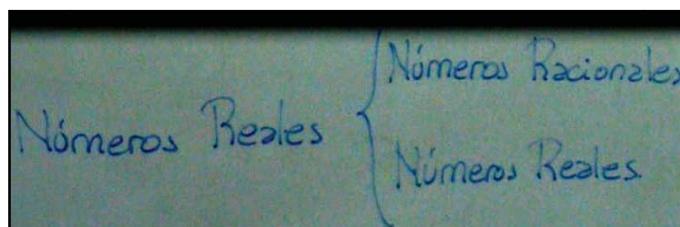 Números Reales
Números Racionales
Números Reales.